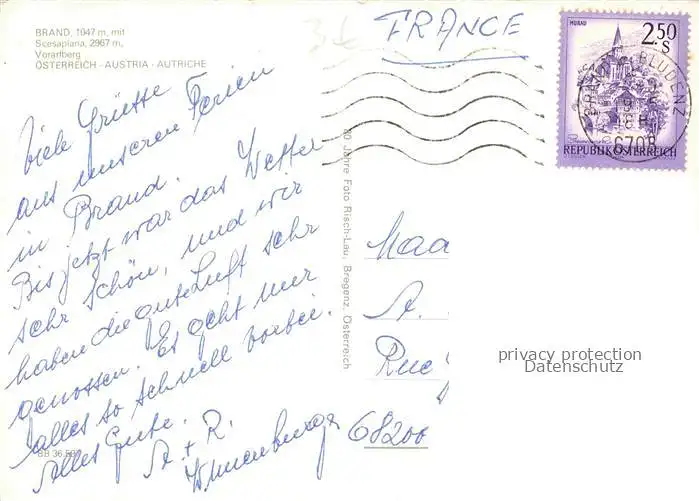 BRAND, 1047 m, mit
Scesaplana, 2967 m,
Vorarlberg
ÖSTERREICH - AUSTRIA - AUTRICHE
Viele Grüsse
aus unseren Ferien
in Brand.
Bis jetzt war das Wetter
sehr schön, und wir
haben die gute Luft sehr
genossen. Es geht nur
alles so schnell vorbei.
Alles Gute.
A + R.
BB 36
30 Jahre Foto Risch-Lau, Bregenz, Österreich
FRANCE
MURAU
2.50
S
REPUBLIK ÖSTERREICH
BRAND BLUDENZ
6708
Maa
A.
Rue
68200
privacy protection
Datenschutz